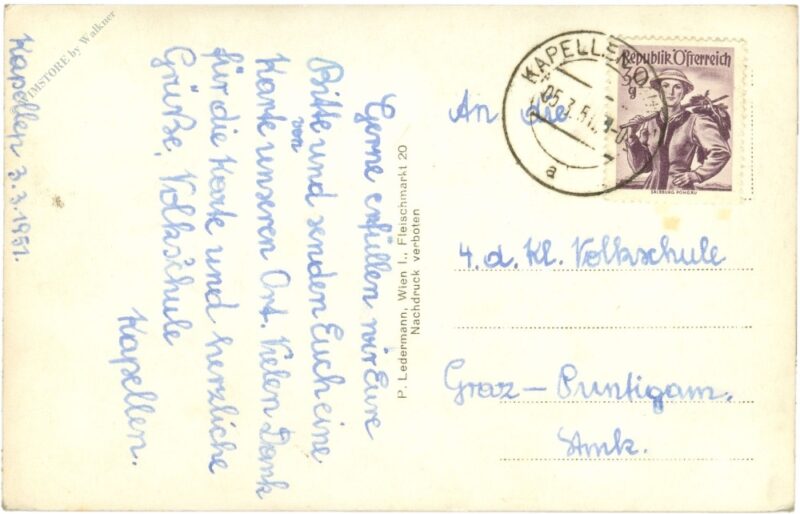 Kapellen 3.3.1951.
Gerne erfüllen wir Eure
Bitte und senden Euch eine
von
Karte unseren Ort. Vielen Dank
für die Karte und herzliche
Grüße, Volksschule
Kapellen.
P. Ledermann, Wien I., Fleischmarkt 20
Nachdruck verboten
An die
4. d. Kl. Volkschule
Graz – Puntigam.
Stmk.
KAPELLEN
05.3.51
a
Republik Österreich
30
g
SALZBURG PONGAU
IMSTORE by Walkner